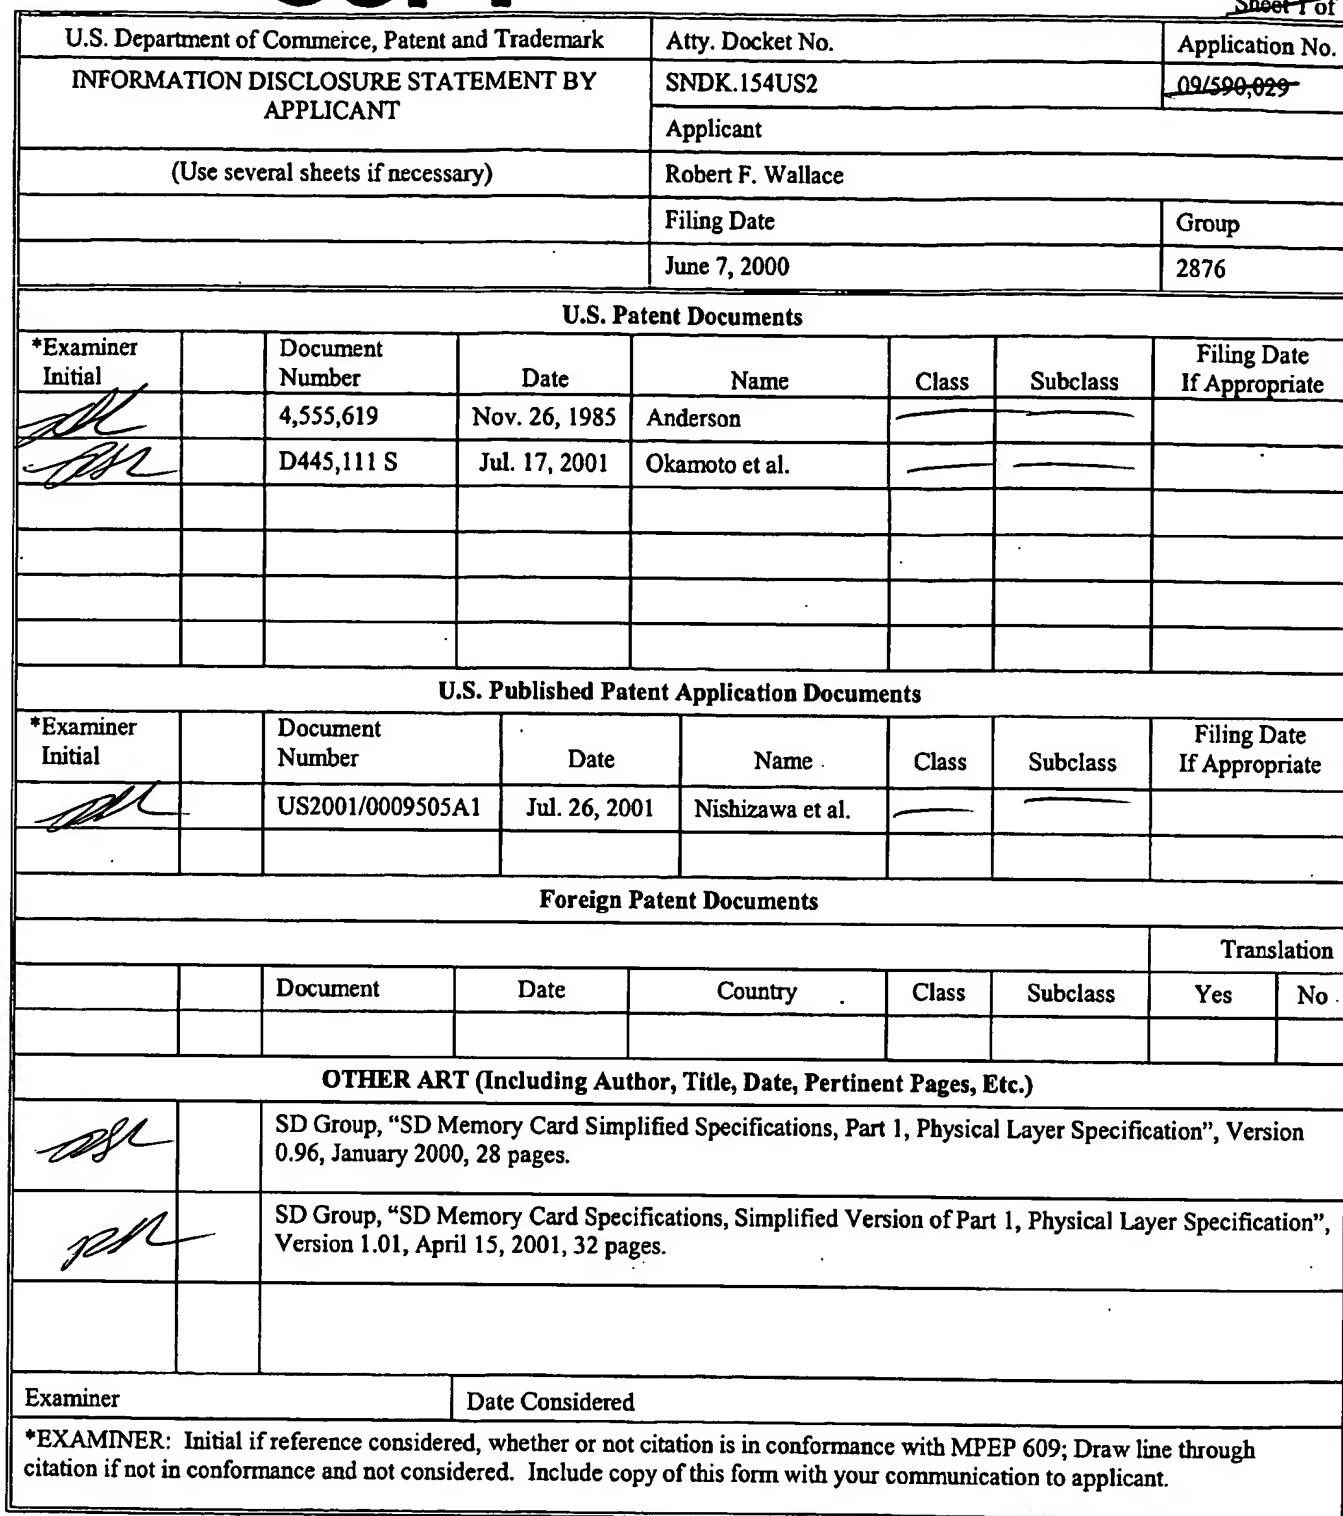 Sheet 1 of
U.S. Department of Commerce, Patent and Trademark
Atty. Docket No.
Application No.
INFORMATION DISCLOSURE STATEMENT BY
APPLICANT
SNDK.154US2
09/590,029
Applicant
(Use several sheets if necessary)
Robert F. Wallace
Filing Date
Group
June 7, 2000
2876
U.S. Patent Documents
*Examiner
Initial
Document
Number
Date
Name
Class
Subclass
Filing Date
If Appropriate
4,555,619
Nov. 26, 1985
Anderson
D445,111 S
Jul. 17, 2001
Okamoto et al.
U.S. Published Patent Application Documents
*Examiner
Initial
Document
Number
Date
Name
Class
Subclass
Filing Date
If Appropriate
US2001/0009505A1
Jul. 26, 2001
Nishizawa et al.
Foreign Patent Documents
Translation
Document
Date
Country
Class
Subclass
Yes
No
OTHER ART (Including Author, Title, Date, Pertinent Pages, Etc.)
SD Group, “SD Memory Card Simplified Specifications, Part 1, Physical Layer Specification”, Version
0.96, January 2000, 28 pages.
SD Group, “SD Memory Card Specifications, Simplified Version of Part 1, Physical Layer Specification”,
Version 1.01, April 15, 2001, 32 pages.
Examiner
Date Considered
*EXAMINER: Initial if reference considered, whether or not citation is in conformance with MPEP 609; Draw line through
citation if not in conformance and not considered. Include copy of this form with your communication to applicant.